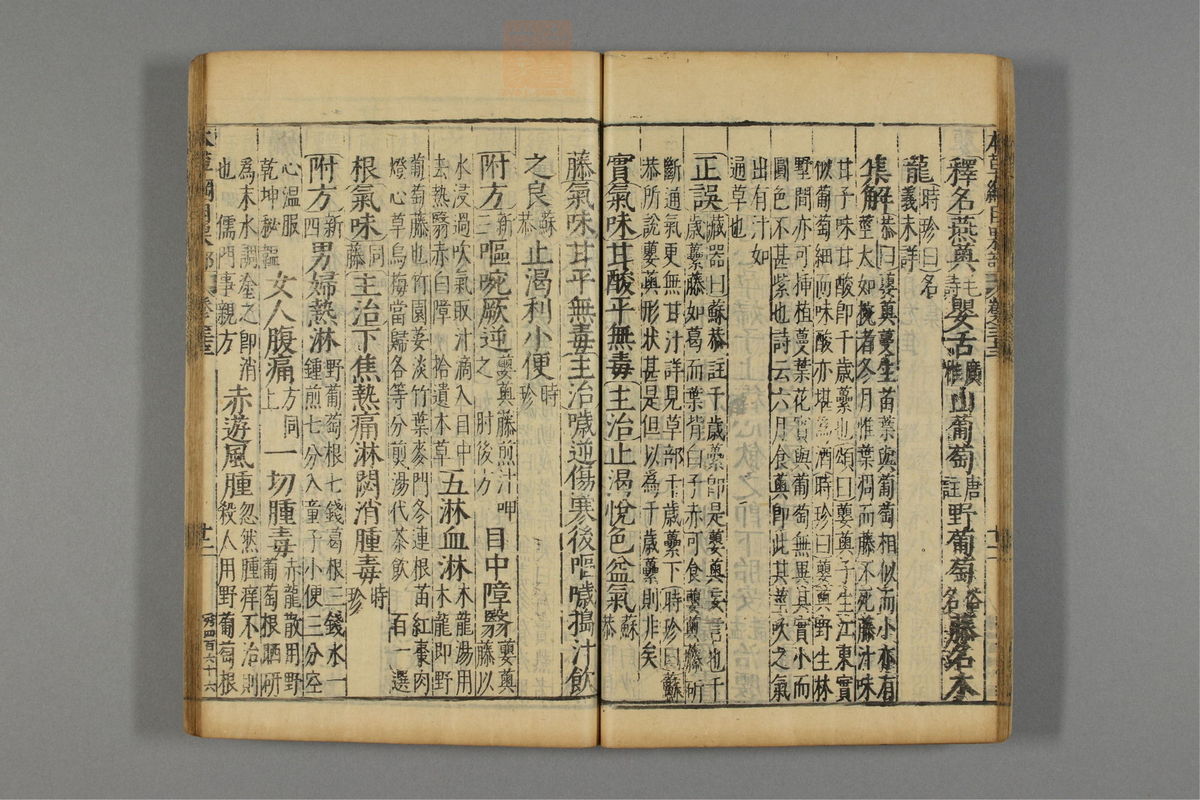 釋名燕薁毛詩嬰舌廣雅山葡萄唐註野葡萄俗名藤名木
龍時珍曰名義未詳
集解恭曰蘡薁蔓生苗葉與葡萄相似而小亦有莖大如椀者冬月惟葉凋而藤不死藤汁味
甘子味甘酸即千歲虆也頌曰蘡薁子生江東實
似葡萄細而味酸亦堪爲酒時珍曰蘡薁野生林
墅間亦可挿植蔓葉花實與葡萄無異其實小而
圓色不甚紫也詩云六月食薁即此其莖吹之氣
出有汁如
通草也
正誤藏器曰蘇恭註千歲虆即是蘡薁妄言也千歲虆藤如葛而葉背白子赤可食蘡薁藤斫
斷通氣更無甘汁詳見草部千歲虆下時珍曰蘇
恭所說蘡薁形狀甚是但以爲千歲虆則非矣
實氣味甘酸平無毒主治止渴悅色益氣蘇恭
藤氣味甘平無毒主治噦逆傷寒後嘔噦搗汁飲
之良蘇恭止渴利小便時珍
附方新三嘔啘厥逆蘡薁藤煎汁呷之 肘後方目中障翳蘡薁藤以
水浸過吹氣取汁滴入目中
去熱翳赤白障 拾遺本草五淋血淋木龍湯用木龍即野
葡萄藤也竹園荽淡竹葉麥門冬連根苗紅棗肉
燈心草烏梅當歸各等分煎湯代茶飲 百一選
根氣味同藤主治下焦熱痛淋閟消腫毒時珍
附方新四男婦熱淋野葡萄根七錢葛根三錢水一鍾煎七分入童子小便三分空
心溫服
乾坤秘韞女人腹痛方同上一切腫毒赤龍散用野葡萄根晒研
爲末水調塗之即消
也 儒門事親方赤遊風腫忽然腫痒不治則殺人用野葡萄根